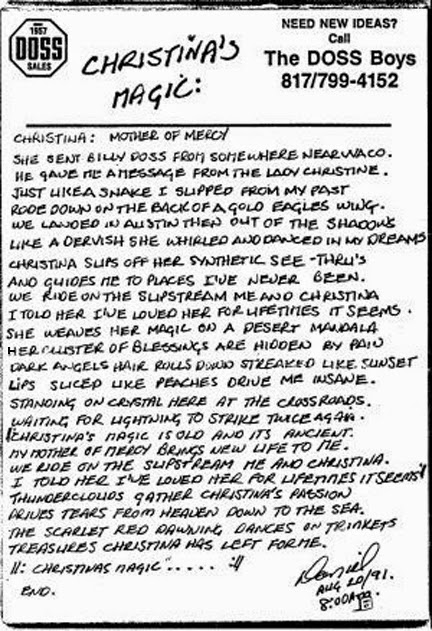 SINCE
1957
DOSS
SALES
NEED NEW IDEAS?
Call
The DOSS Boys
817/799-4152
CHRISTINA'S
MAGIC:
CHRISTINA: MOTHER OF MERCY
SHE SENT BILLY DOSS FROM SOMEWHERE NEAR WACO.
HE GAVE ME A MESSAGE FROM THE LADY CHRISTINE.
JUST LIKE A SNAKE I SLIPPED FROM MY PAST
RODE DOWN ON THE BACK OF A GOLD EAGLES WING.
WE LANDED IN AUSTIN THEN OUT OF THE SHADOWS
LIKE A DERVISH SHE WHIRLED AND DANCED IN MY DREAMS
CHRISTINA SLIPS OFF HER SYNTHETIC SEE-THRU'S
AND GUIDES ME TO PLACES I'VE NEVER BEEN.
WE RIDE ON THE SLIPSTREAM ME AND CHRISTINA
I TOLD HER I'VE LOVED HER FOR LIFETIMES IT SEEMS.
SHE WEAVES HER MAGIC ON A DESERT MANDALA
HER CLUSTER OF BLESSINGS ARE HIDDEN BY PAIN
DARK ANGELS HAIR ROLLS DOWN STREAKED LIKE SUNSET
LIPS SLICED LIKE PEACHES DRIVE ME INSANE.
STANDING ON CRYSTAL HERE AT THE CROSSROADS.
WAITING FOR LIGHTNING TO STRIKE TWICE AGAIN.
"CHRISTINA'S MAGIC IS OLD AND ITS ANCIENT.
MY MOTHER OF MERCY BRINGS NEW LIFE TO ME.
WE RIDE ON THE SLIPSTREAM ME AND CHRISTINA.
I TOLD HER I'VE LOVED HER FOR LIFETIMES IT SEEMS"
THUNDERCLOUDS GATHER CHRISTINA'S PASSION
DRIVES TEARS FROM HEAVEN DOWN TO THE SEA.
THE SCARLET RED DAWNING DANCES ON TRINKETS
TREASURES CHRISTINA HAS LEFT FOR ME.
//: CHRISTINAS MAGIC"..... ://
END.
Daniel
AUG 20/91.
8:00AM.